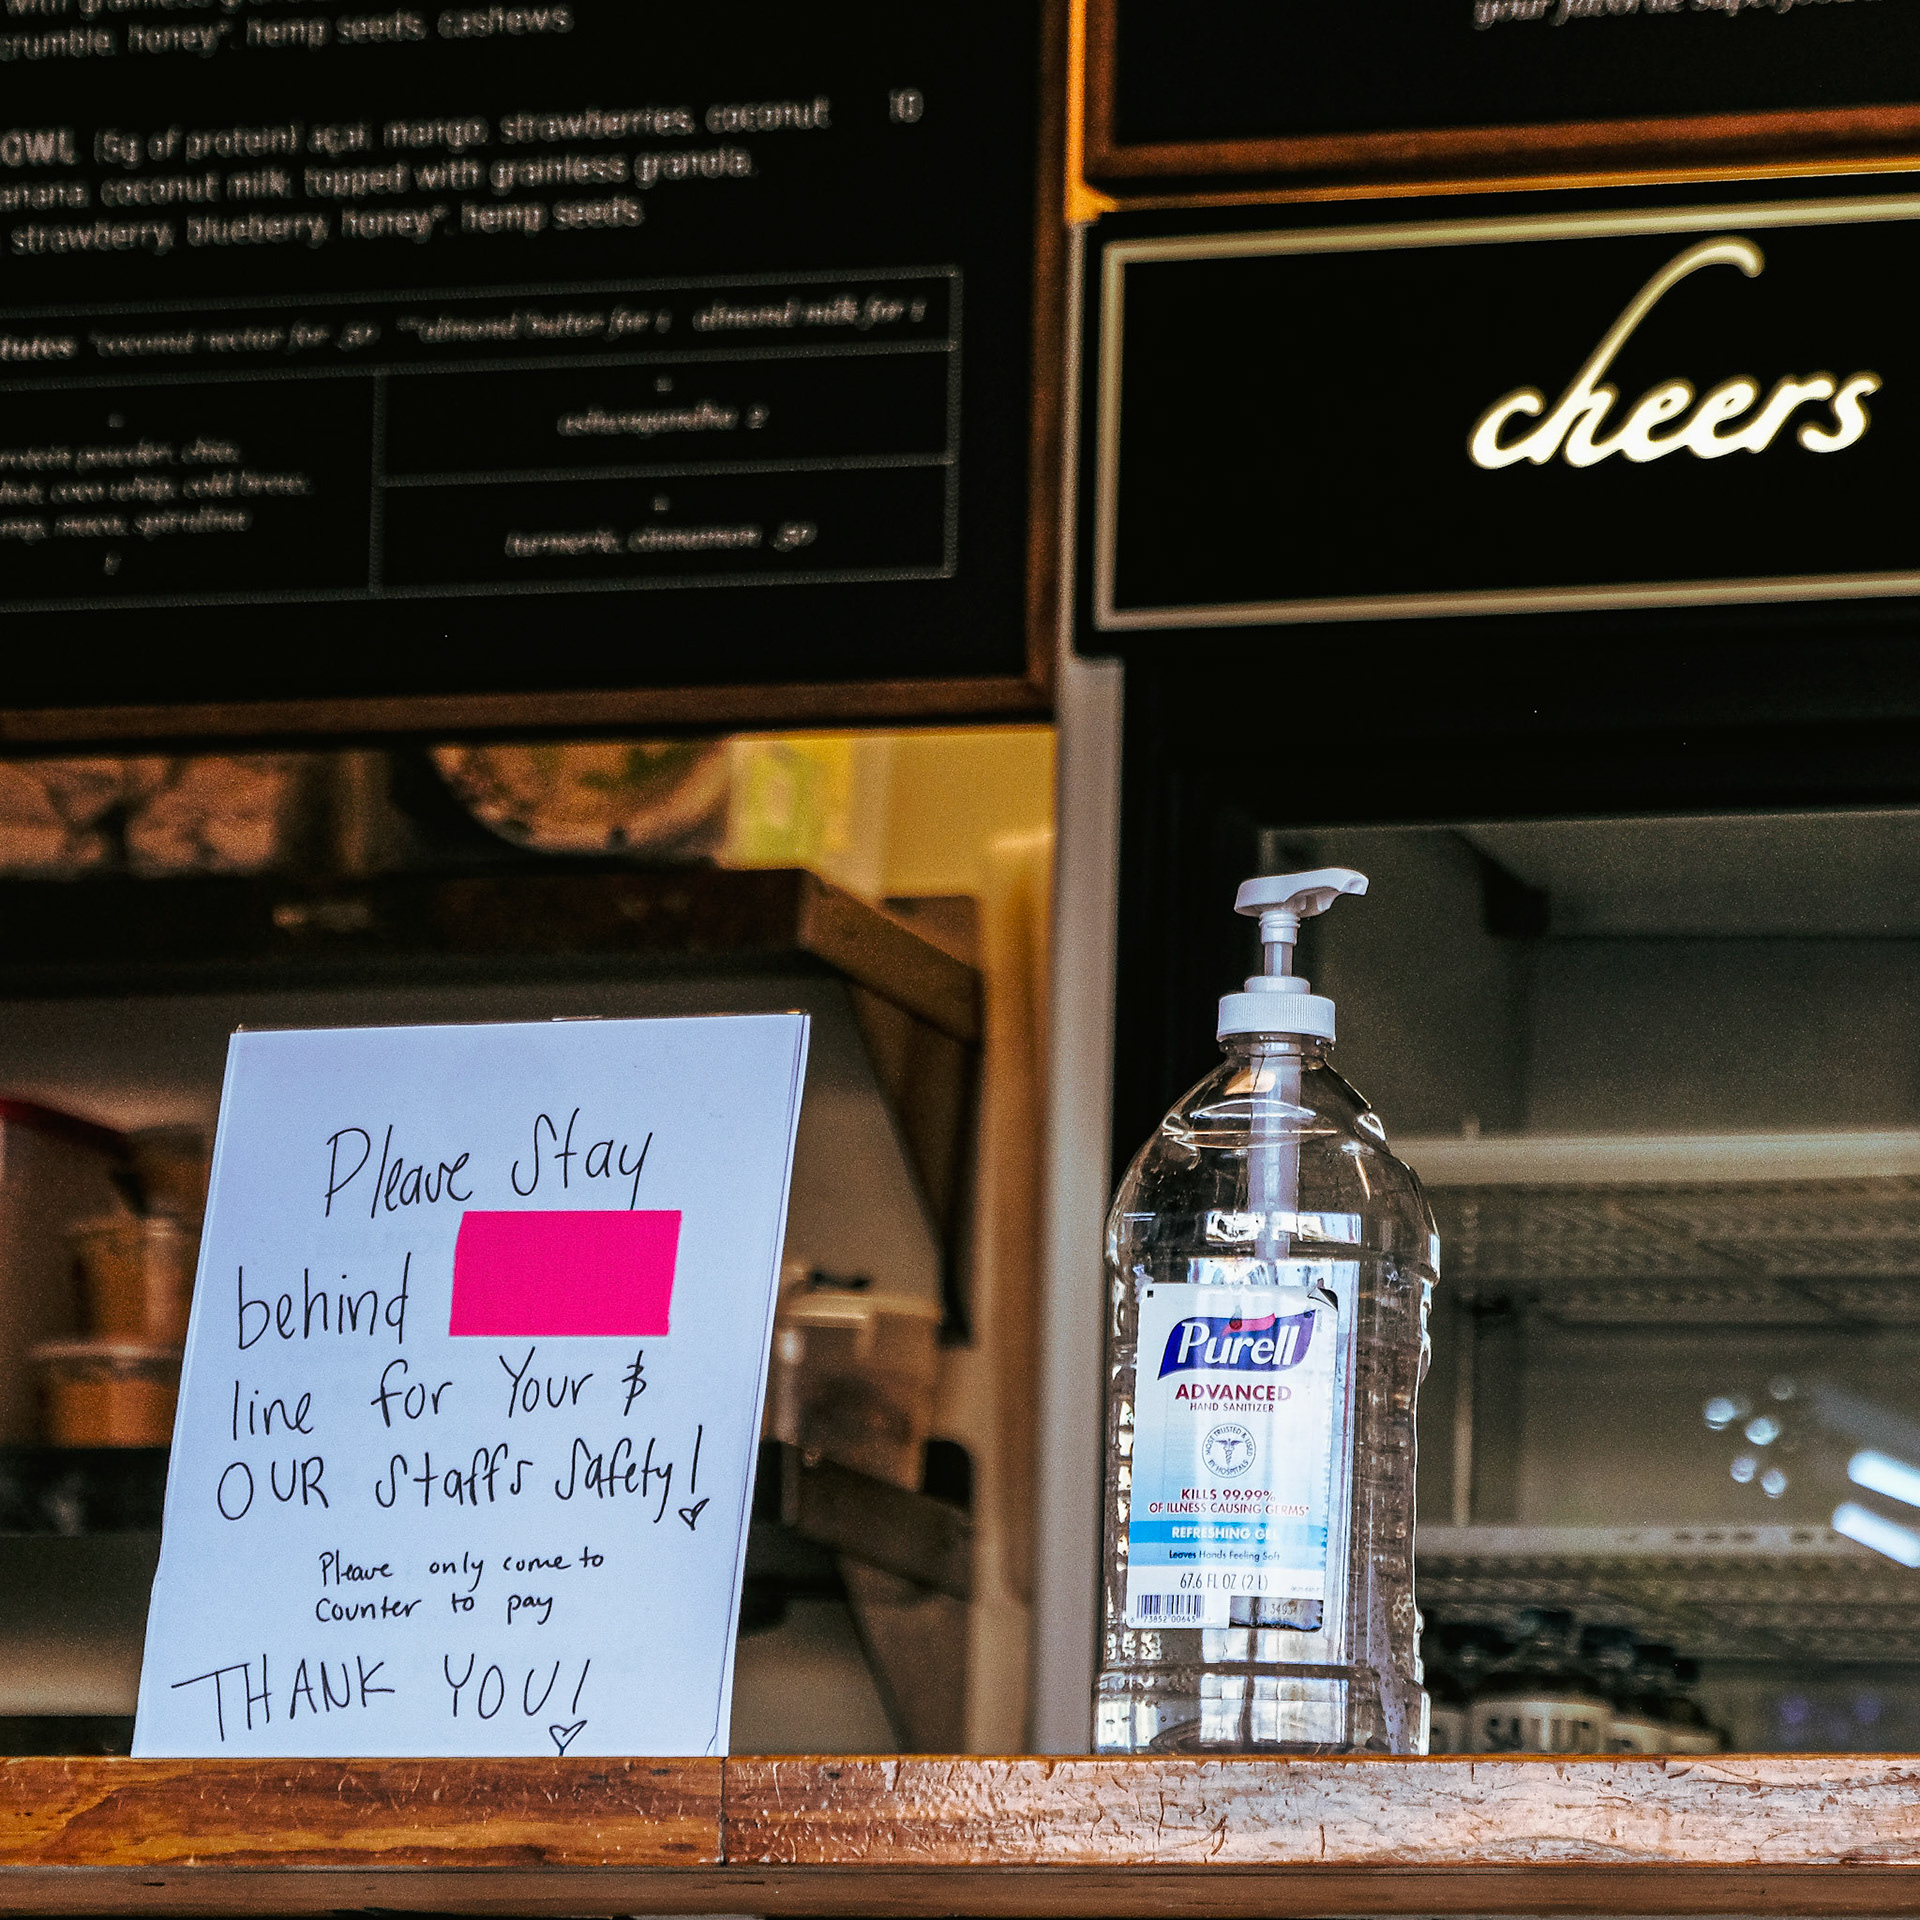 crumble, honey*, hemp seeds, cashews
OWL (5g of protein) açai, mango, strawberries, coconut 10
anana, coconut milk, topped with grainless granola,
strawberry, blueberry, honey*, hemp seeds
tutes *coconut nectar for .50 **almond butter for 1 almond milk for 1
ashwagandha 2
rotein powder, chia,
coco whip, cold brew,
maca, spirulina
1
turmeric, cinnamon .50
your favorite superfood
cheers
Please Stay
behind
line for Your &
OUR Staff's Safety!
Please only come to
Counter to pay
THANK YOU!
Purell
ADVANCED
HAND SANITIZER
MOST TRUSTED & USED
BY HOSPITALS
KILLS 99.99%
OF ILLNESS CAUSING GERMS*
REFRESHING GEL
Leaves Hands Feeling Soft
67.6 FL OZ (2 L)
73852 00645
SALUD